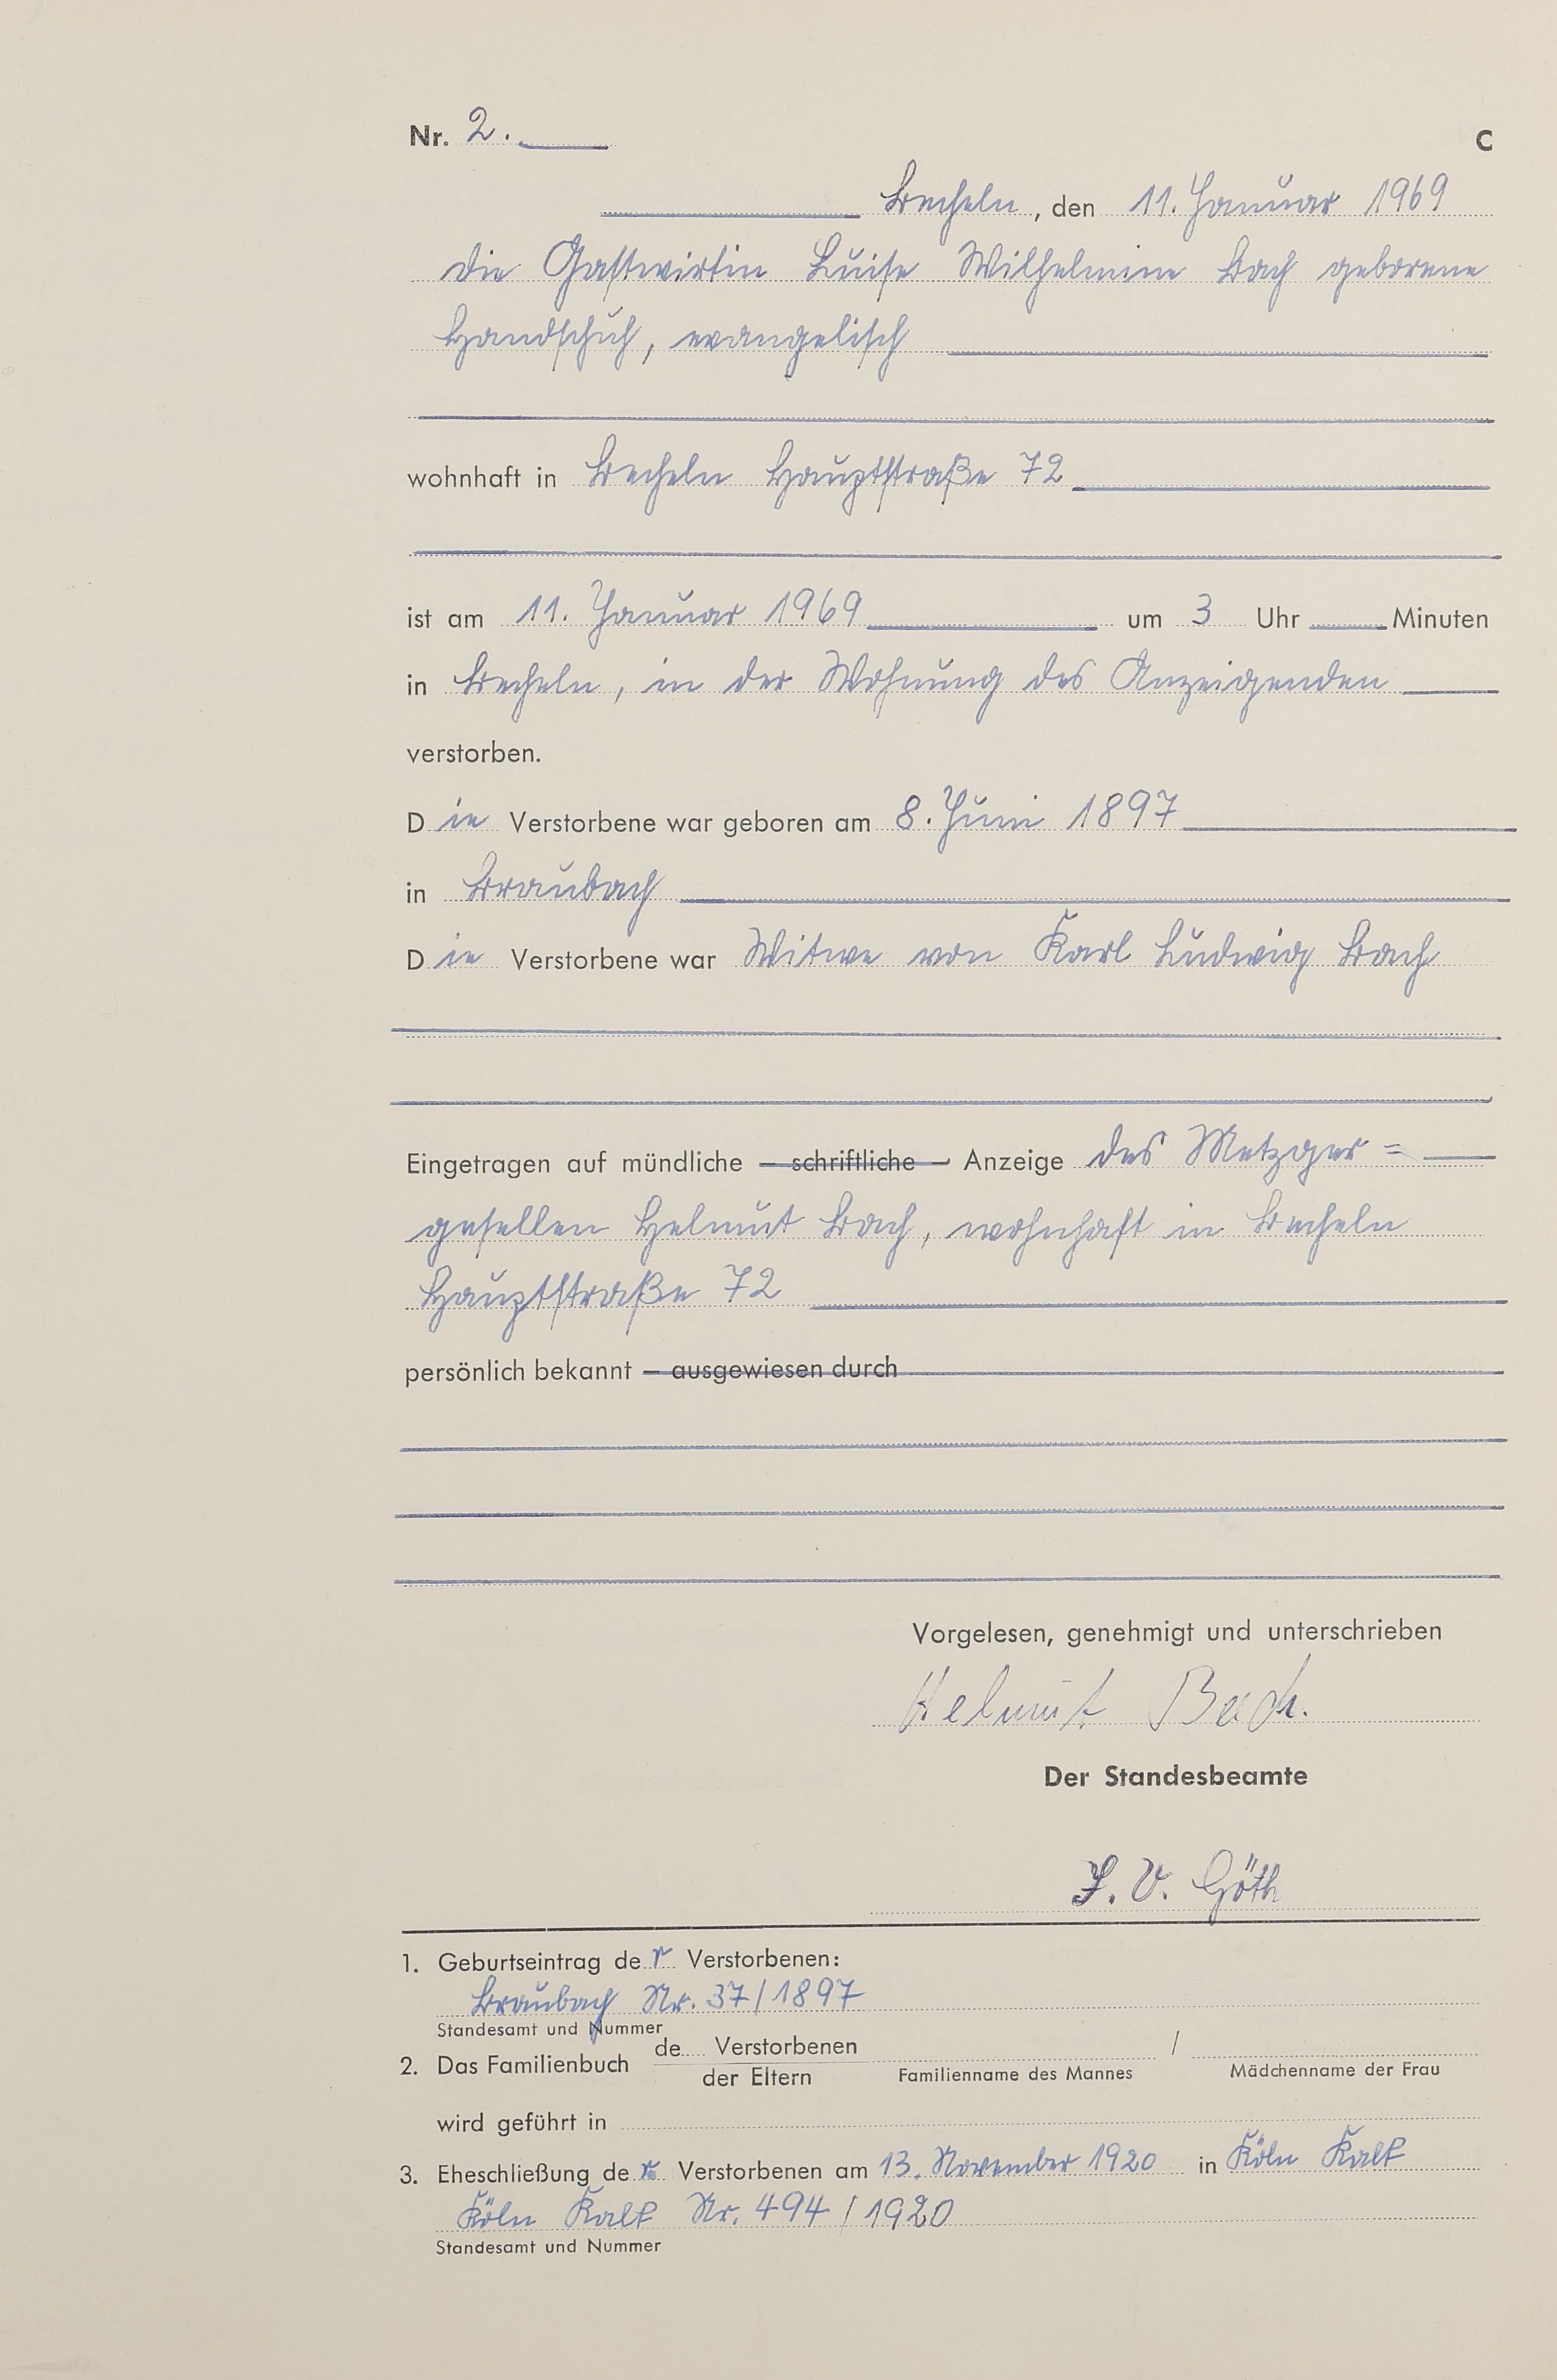 Nr. 2.
C
Becheln, den 11. Januar 1969
die Gastwirtin Luise Wilhelmine Bach geborene
Handschuh, evangelisch
wohnhaft in Becheln Hauptstraße 72
ist am 11. Januar 1969 um 3 Uhr Minuten
in Becheln, in der Wohnung des Anzeigenden
verstorben.
Die Verstorbene war geboren am 8. Juni 1897
in Braubach
Die Verstorbene war Witwe von Karl Ludwig Bach
Eingetragen auf mündliche – schriftliche – Anzeige des Metzger=
gesellen Helmut Bach, wohnhaft in Becheln
Hauptstraße 72
persönlich bekannt – ausgewiesen durch
Vorgelesen, genehmigt und unterschrieben
Helmut Bach.
Der Standesbeamte
I. V. Göth
1. Geburtseintrag der Verstorbenen:
Braubach Nr. 37/1897
Standesamt und Nummer
2. Das Familienbuch de Verstorbenen /
der Eltern Familienname des Mannes Mädchenname der Frau
wird geführt in
3. Eheschließung der Verstorbenen am 13. November 1920 in Köln Kalk
Köln Kalk Nr. 494/1920
Standesamt und Nummer